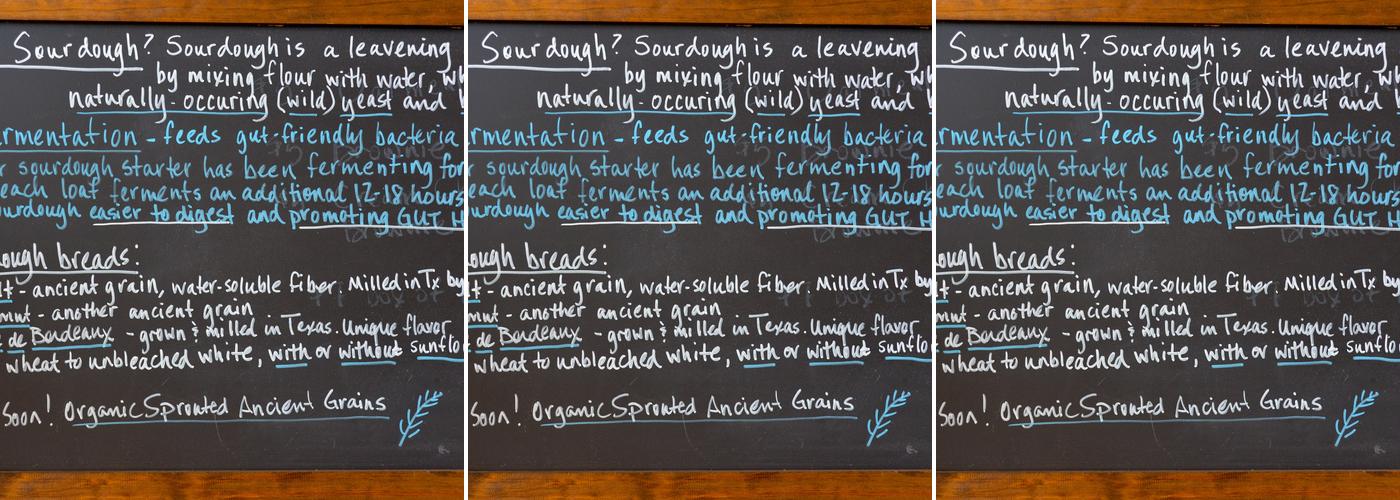 Sourdough? Sourdough is a leavening
by mixing flour with water, wh
naturally-occuring (wild) yeast and
rmentation - feeds gut-friendly bacteria
r sourdough starter has been fermenting for
each loaf ferments an additional 12-18 hours
urdough easier to digest and promoting GUT H
ough breads:
lt - ancient grain, water-soluble fiber. Milled in Tx by
mut - another ancient grain
de Bordeaux - grown & milled in Texas. Unique flavor
wheat to unbleached white, with or without sunflo
Soon! Organic Sprouted Ancient Grains
Sourdough? Sourdough is a leavening
by mixing flour with water, wh
naturally-occuring (wild) yeast and
rmentation - feeds gut-friendly bacteria
r sourdough starter has been fermenting for
each loaf ferments an additional 12-18 hours
urdough easier to digest and promoting GUT H
ough breads:
lt - ancient grain, water-soluble fiber. Milled in Tx by
mut - another ancient grain
de Bordeaux - grown & milled in Texas. Unique flavor
wheat to unbleached white, with or without sunflo
Soon! Organic Sprouted Ancient Grains
Sourdough? Sourdough is a leavening
by mixing flour with water, wh
naturally-occuring (wild) yeast and
rmentation - feeds gut-friendly bacteria
r sourdough starter has been fermenting for
each loaf ferments an additional 12-18 hours
urdough easier to digest and promoting GUT H
ough breads:
lt - ancient grain, water-soluble fiber. Milled in Tx by
mut - another ancient grain
de Bordeaux - grown & milled in Texas. Unique flavor
wheat to unbleached white, with or without sunflo
Soon! Organic Sprouted Ancient Grains